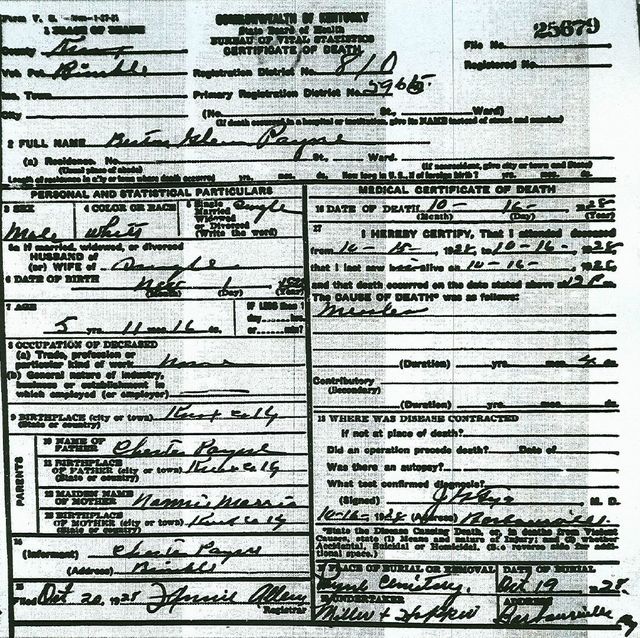 Form V. S.
COMMONWEALTH OF KENTUCKY
State Board of Health
BUREAU OF VITAL STATISTICS
CERTIFICATE OF DEATH
25679
File No.
Registered No.
1 PLACE OF DEATH
County Knox
Vot. Pct. Bimble
Inc. Town
City
Registration District No. 810
Primary Registration District No.
(No. St., Ward)
(If death occurred in a hospital or institution, give its NAME instead of street and number)
2 FULL NAME Payne
(a) Residence. No. St., Ward.
(Usual place of abode) (If nonresident, give city or town and State)
Length of residence in city or town where death occurred yrs. mos. ds. How long in U. S., if of foreign birth? yrs. mos. ds.
PERSONAL AND STATISTICAL PARTICULARS
3 SEX Male
4 COLOR OR RACE White
5 Single Married Widowed or Divorced (Write the word) Single
5a If married, widowed, or divorced
HUSBAND of
(or) WIFE of Single
6 DATE OF BIRTH 1
(Month) (Day) (Year)
7 AGE 5 yrs. 11 mos. 16 ds.
IF LESS than 1 day hrs. or min?
8 OCCUPATION OF DECEASED
(a) Trade, profession or
particular kind of work None
(b) General nature of industry,
business or establishment in
which employed (or employer)
9 BIRTHPLACE (city or town) Knox co Ky
(State or country)
PARENTS
10 NAME OF FATHER Chester Payne
11 BIRTHPLACE OF FATHER (city or town) Knox co Ky
(State or country)
12 MAIDEN NAME OF MOTHER Nannie Morris
13 BIRTHPLACE OF MOTHER (city or town) Knox co Ky
(State or country)
14
(Informant) Chester Payne
(Address) Bimble
15
Filed Oct 20, 1928
Registrar
MEDICAL CERTIFICATE OF DEATH
16 DATE OF DEATH 10- 16- 1928
(Month) (Day) (Year)
17
I HEREBY CERTIFY, That I attended deceased
from 10-15-, 1928, to 10-16-, 1928
that I last saw alive on 10-16-, 1928,
and that death occurred on the date stated above at
The CAUSE OF DEATH* was as follows:
Measles
(Duration) yrs. mos. 4 ds.
Contributory
(Secondary)
(Duration) yrs. mos. ds.
18 WHERE WAS DISEASE CONTRACTED
if not at place of death?
Did an operation precede death? Date of
Was there an autopsy?
What test confirmed diagnosis?
(Signed) M. D.
10-16-1928 (Address) Barbourville.
*State the Disease Causing Death, or, in deaths from Violent
Causes, state (1) Means and Nature of Injury; and (2) whether
Accidental, Suicidal or Homicidal. (See reverse side for addi-
tional space.)
PLACE OF BURIAL OR REMOVAL
Cemetery.
DATE OF BURIAL
Oct 19 1928.
UNDERTAKER
Miller & Hopper
ADDRESS
Barbourville